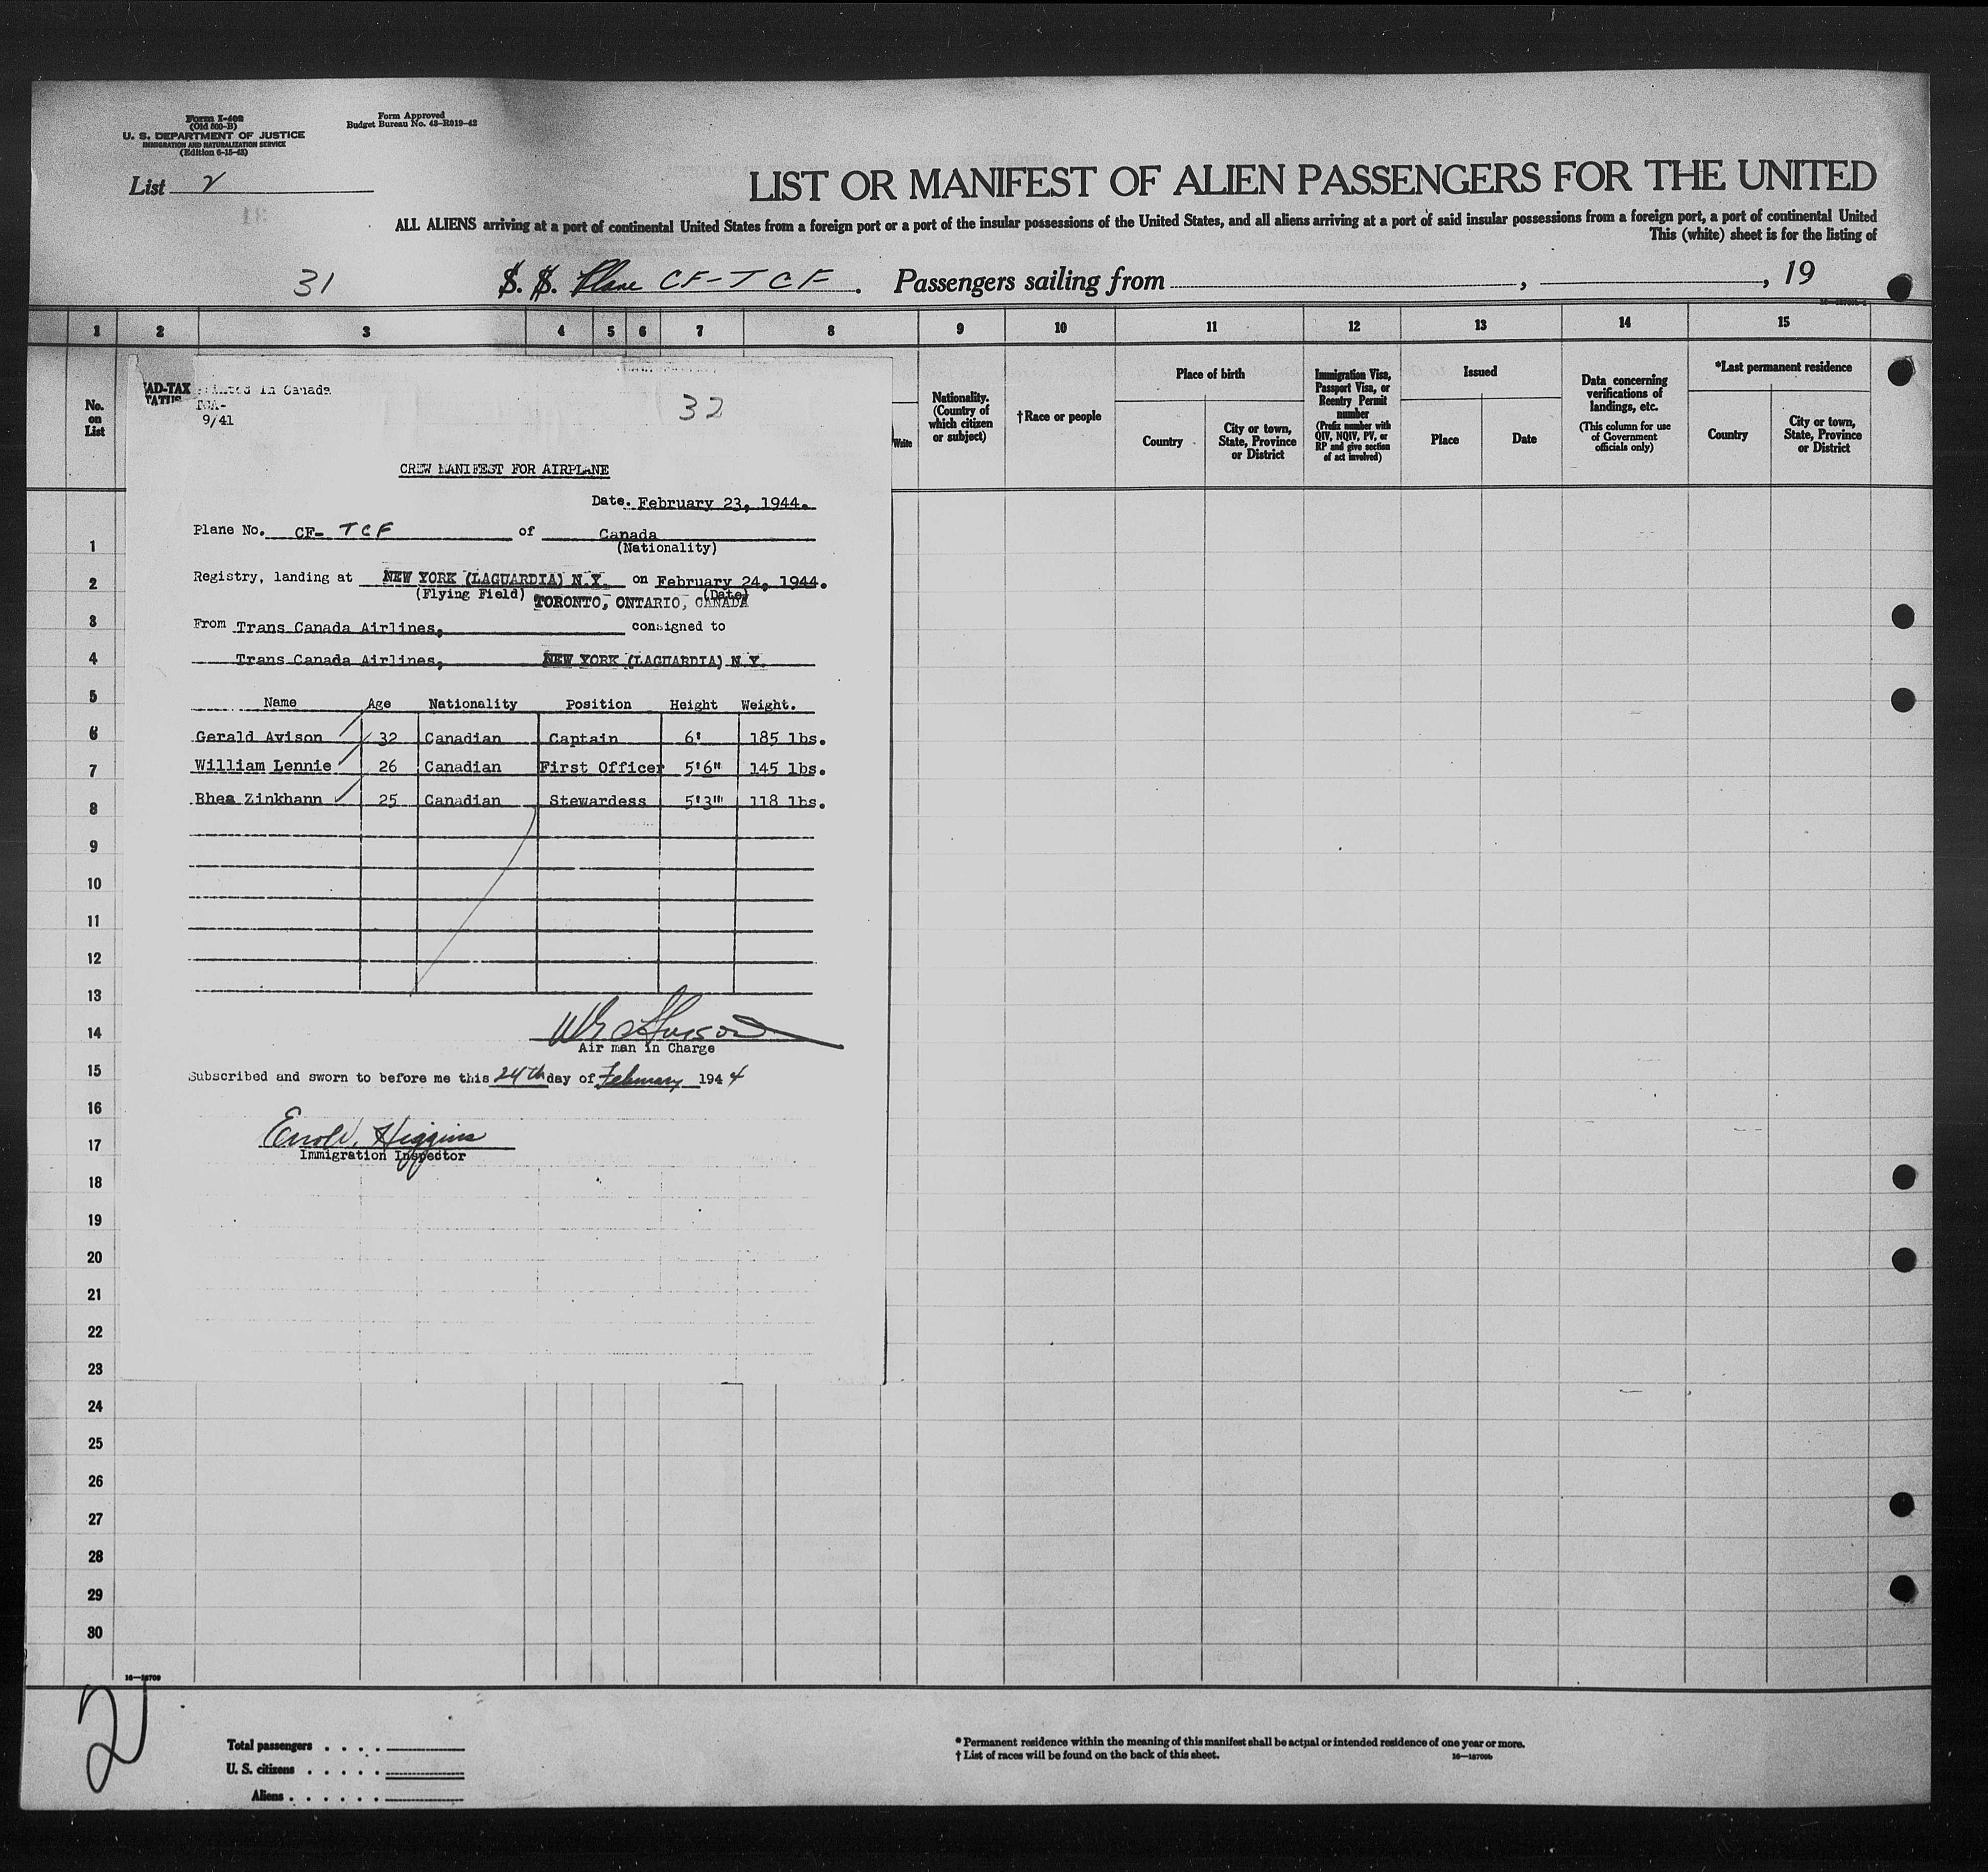 Form I-402
(Old 500-B)
U. S. DEPARTMENT OF JUSTICE
IMMIGRATION AND NATURALIZATION SERVICE
(Edition 6-15-43)
Form Approved
Budget Bureau No. 43-R019-42
List 2
LIST OR MANIFEST OF ALIEN PASSENGERS FOR THE UNITED
ALL ALIENS arriving at a port of continental United States from a foreign port or a port of the insular possessions of the United States, and all aliens arriving at a port of said insular possessions from a foreign port, a port of continental United
This (white) sheet is for the listing of
31 S. S. Plane CF-TCF. Passengers sailing from , , 19
1 2 3 4 5 6 7 8 9 10 11 12 13 14 15
No.
on
List
EAD-TAX
STATUS
Write
Nationality.
(Country of
which citizen
or subject)
†Race or people
Place of birth
Country
City or town,
State, Province
or District
Immigration Visa,
Passport Visa, or
Reentry Permit
number
(Prefix number with
QIV, NQIV, PV, or
RP and give section
of act involved)
Issued
Place
Date
Data concerning
verifications of
landings, etc.
(This column for use
of Government
officials only)
*Last permanent residence
Country
City or town,
State, Province
or District
Printed in Canada
TCA-
9/41
32
CREW MANIFEST FOR AIRPLANE
Date. February 23, 1944.
Plane No. CF- TCF of Canada
(Nationality)
Registry, landing at NEW YORK (LAGUARDIA) N.Y. on February 24, 1944.
(Flying Field) (Date)
TORONTO, ONTARIO, CANADA
From Trans Canada Airlines, consigned to
Trans Canada Airlines, NEW YORK (LAGUARDIA) N.Y.
Name Age Nationality Position Height Weight.
Gerald Avison 32 Canadian Captain 6' 185 lbs.
William Lennie 26 Canadian First Officer 5'6" 145 lbs.
Rhea Zinkhann 25 Canadian Stewardess 5'3" 118 lbs.
WG Avison
Air man in Charge
Subscribed and sworn to before me this 24th day of February 1944
Errol V. Higgins
Immigration Inspector
1
2
3
4
5
6
7
8
9
10
11
12
13
14
15
16
17
18
19
20
21
22
23
24
25
26
27
28
29
30
16—18709
2
Total passengers . . . .
U. S. citizens . . . . .
Aliens . . . . . .
* Permanent residence within the meaning of this manifest shall be actual or intended residence of one year or more.
† List of races will be found on the back of this sheet.